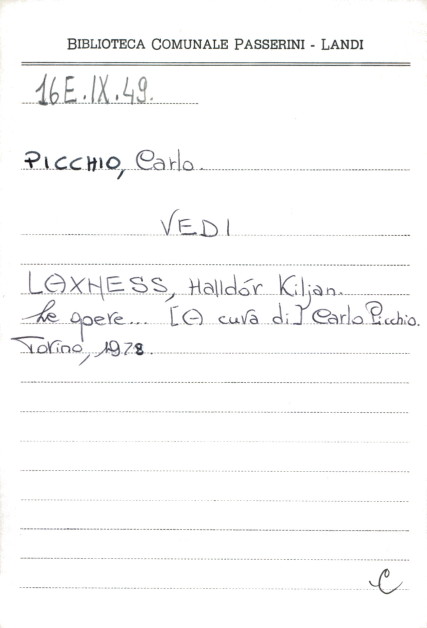 BIBLIOTECA COMUNALE PASSERINI - LANDI
16E.IX.49.
PICCHIO, Carlo.
VEDI
LAXNESS, Halldór Kiljan.
Le opere... [A cura di] Carlo Picchio.
Torino, 1978.
C